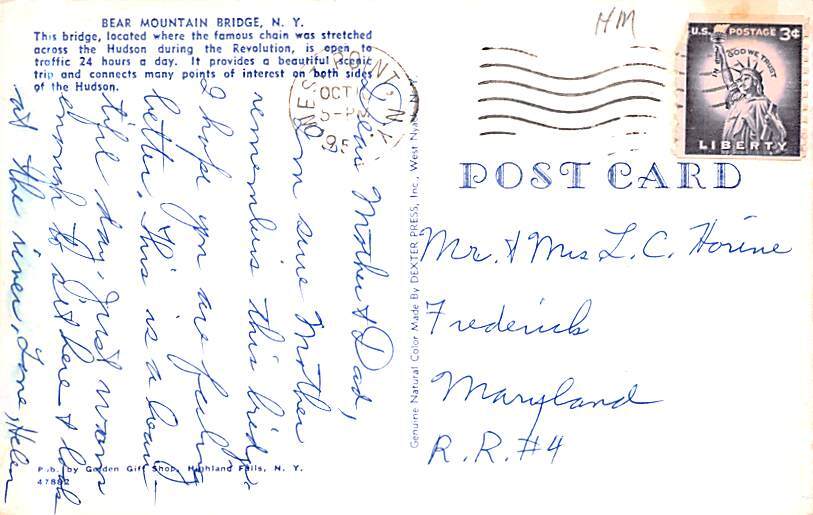 BEAR MOUNTAIN BRIDGE, N. Y.
This bridge, located where the famous chain was stretched
across the Hudson during the Revolution, is open to
traffic 24 hours a day. It provides a beautiful scenic
trip and connects many points of interest on both sides
of the Hudson.
Dear Mother & Dad,
I'm sure Mother
remembers this bridge.
I hope you are feeling
better. This is a beau-
tiful day, just warm
enough to sit here & look
at the river. Love, Helen
Pub. by Garden Gift Shop, Highland Falls, N. Y.
47882
Genuine Natural Color Made By DEXTER PRESS, Inc., West Nyack, N. Y.
HM
WEST POINT N.Y.
OCT
5-PM
195
U.S. POSTAGE 3¢
IN GOD WE TRUST
LIBERTY
POST CARD
Mr. & Mrs L. C. Horine
Frederick
Maryland
R. R. #4